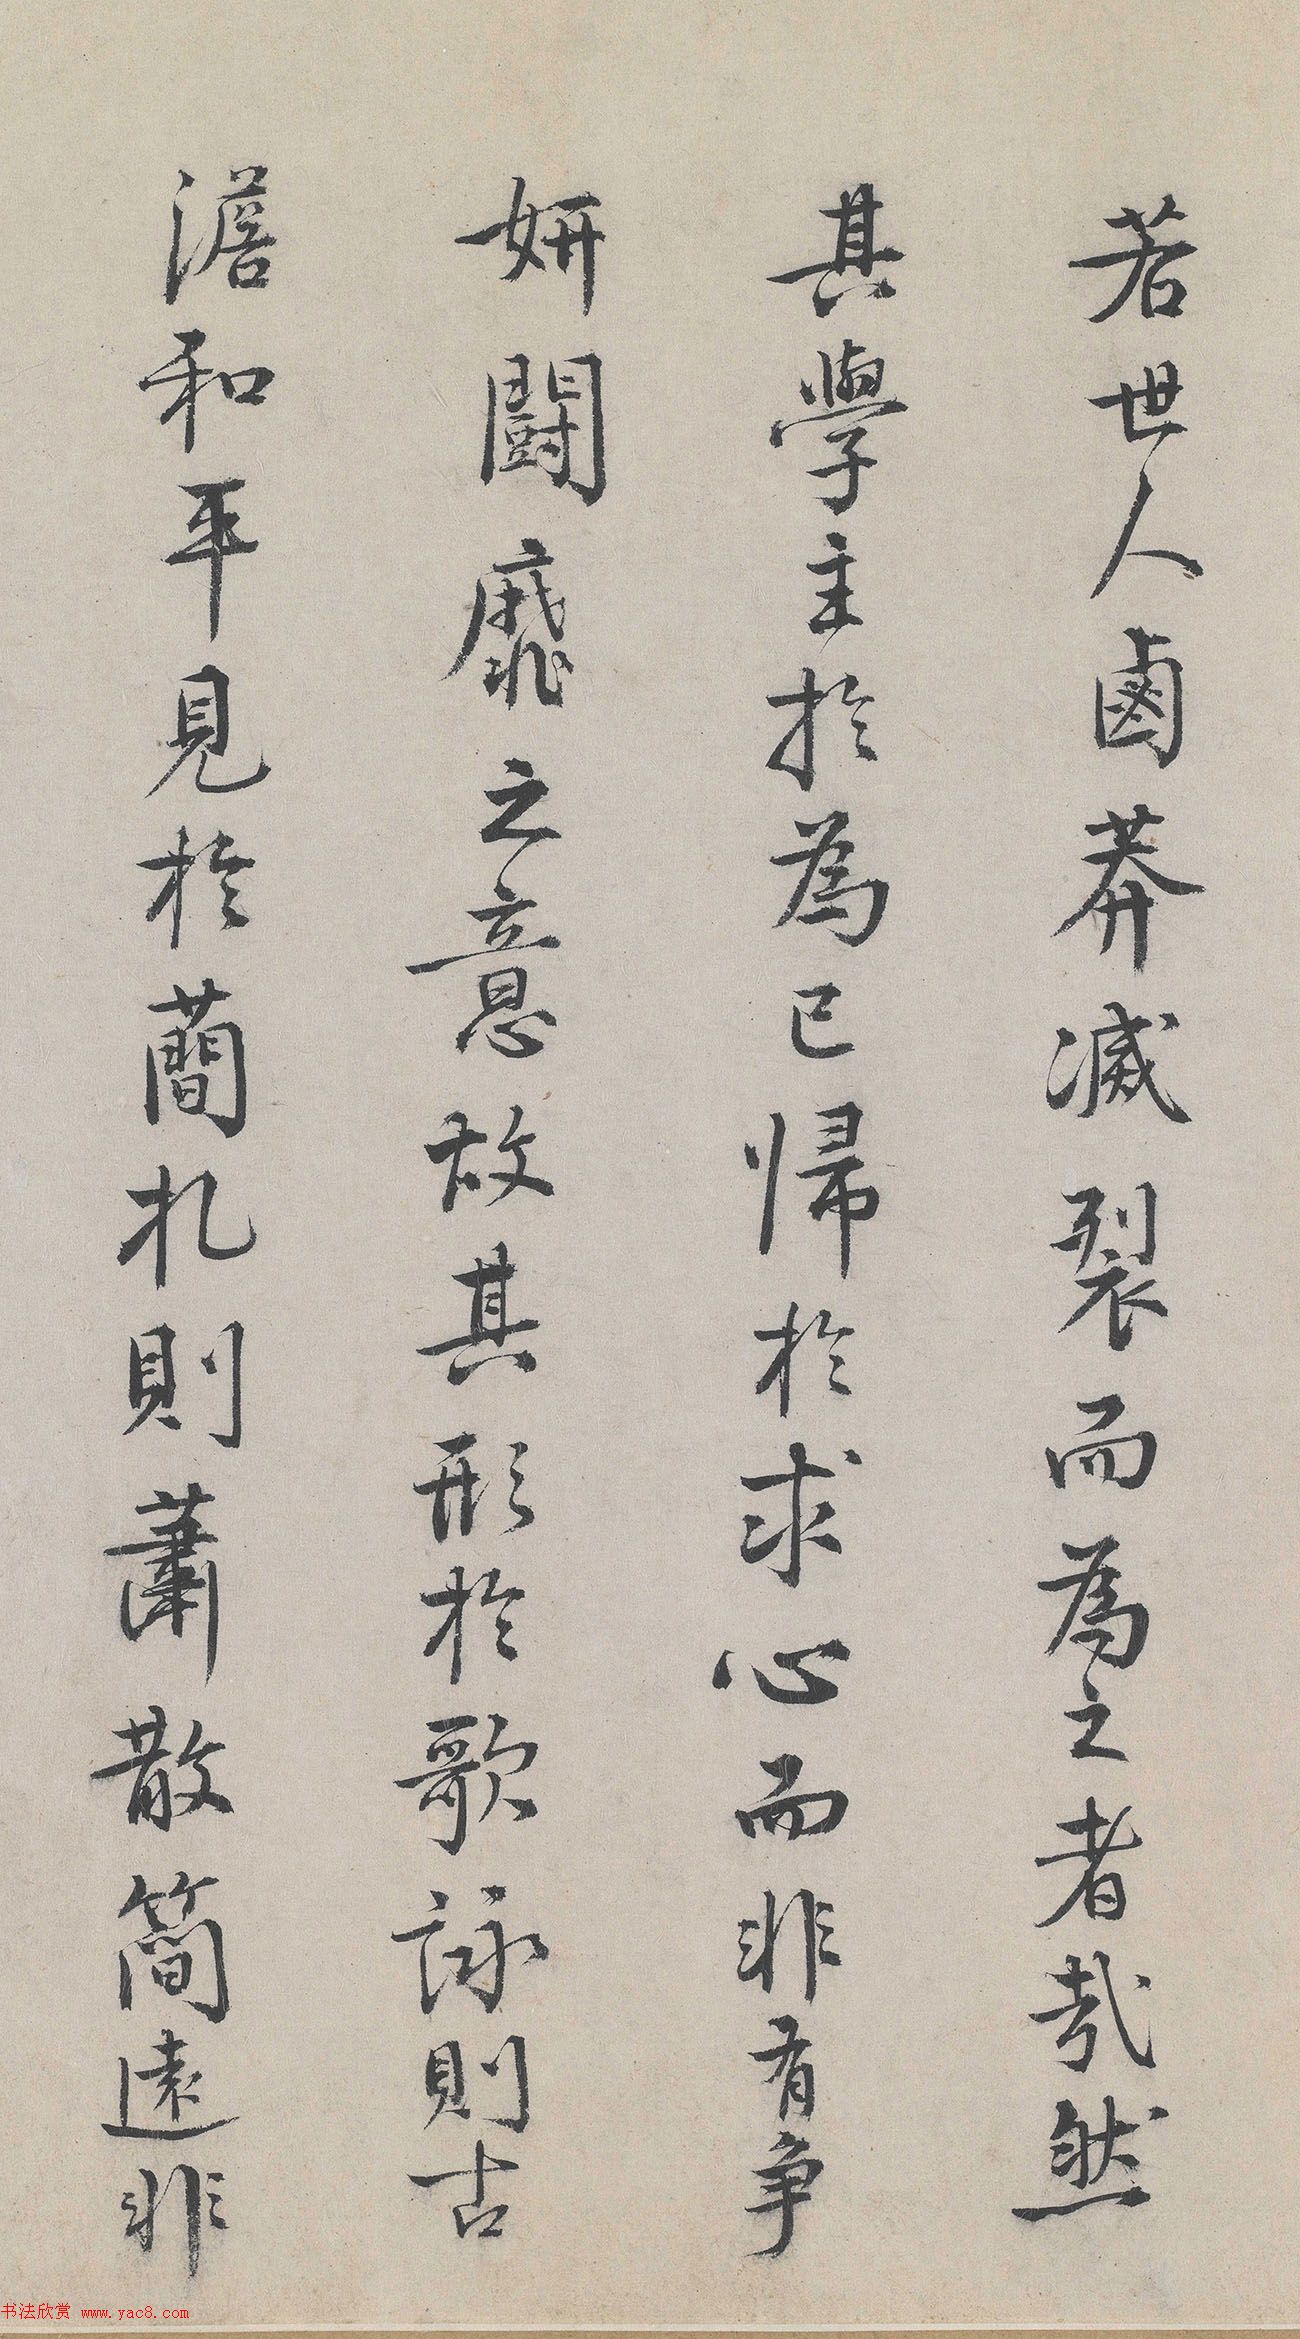 若世人鹵莽滅裂而為之者哉然
其學主於為己歸於求心而非有爭
妍鬪靡之意故其形於歌詠則古
澹和平見於蕳札則蕭散簡遠非
书法欣赏 www.yac8.com